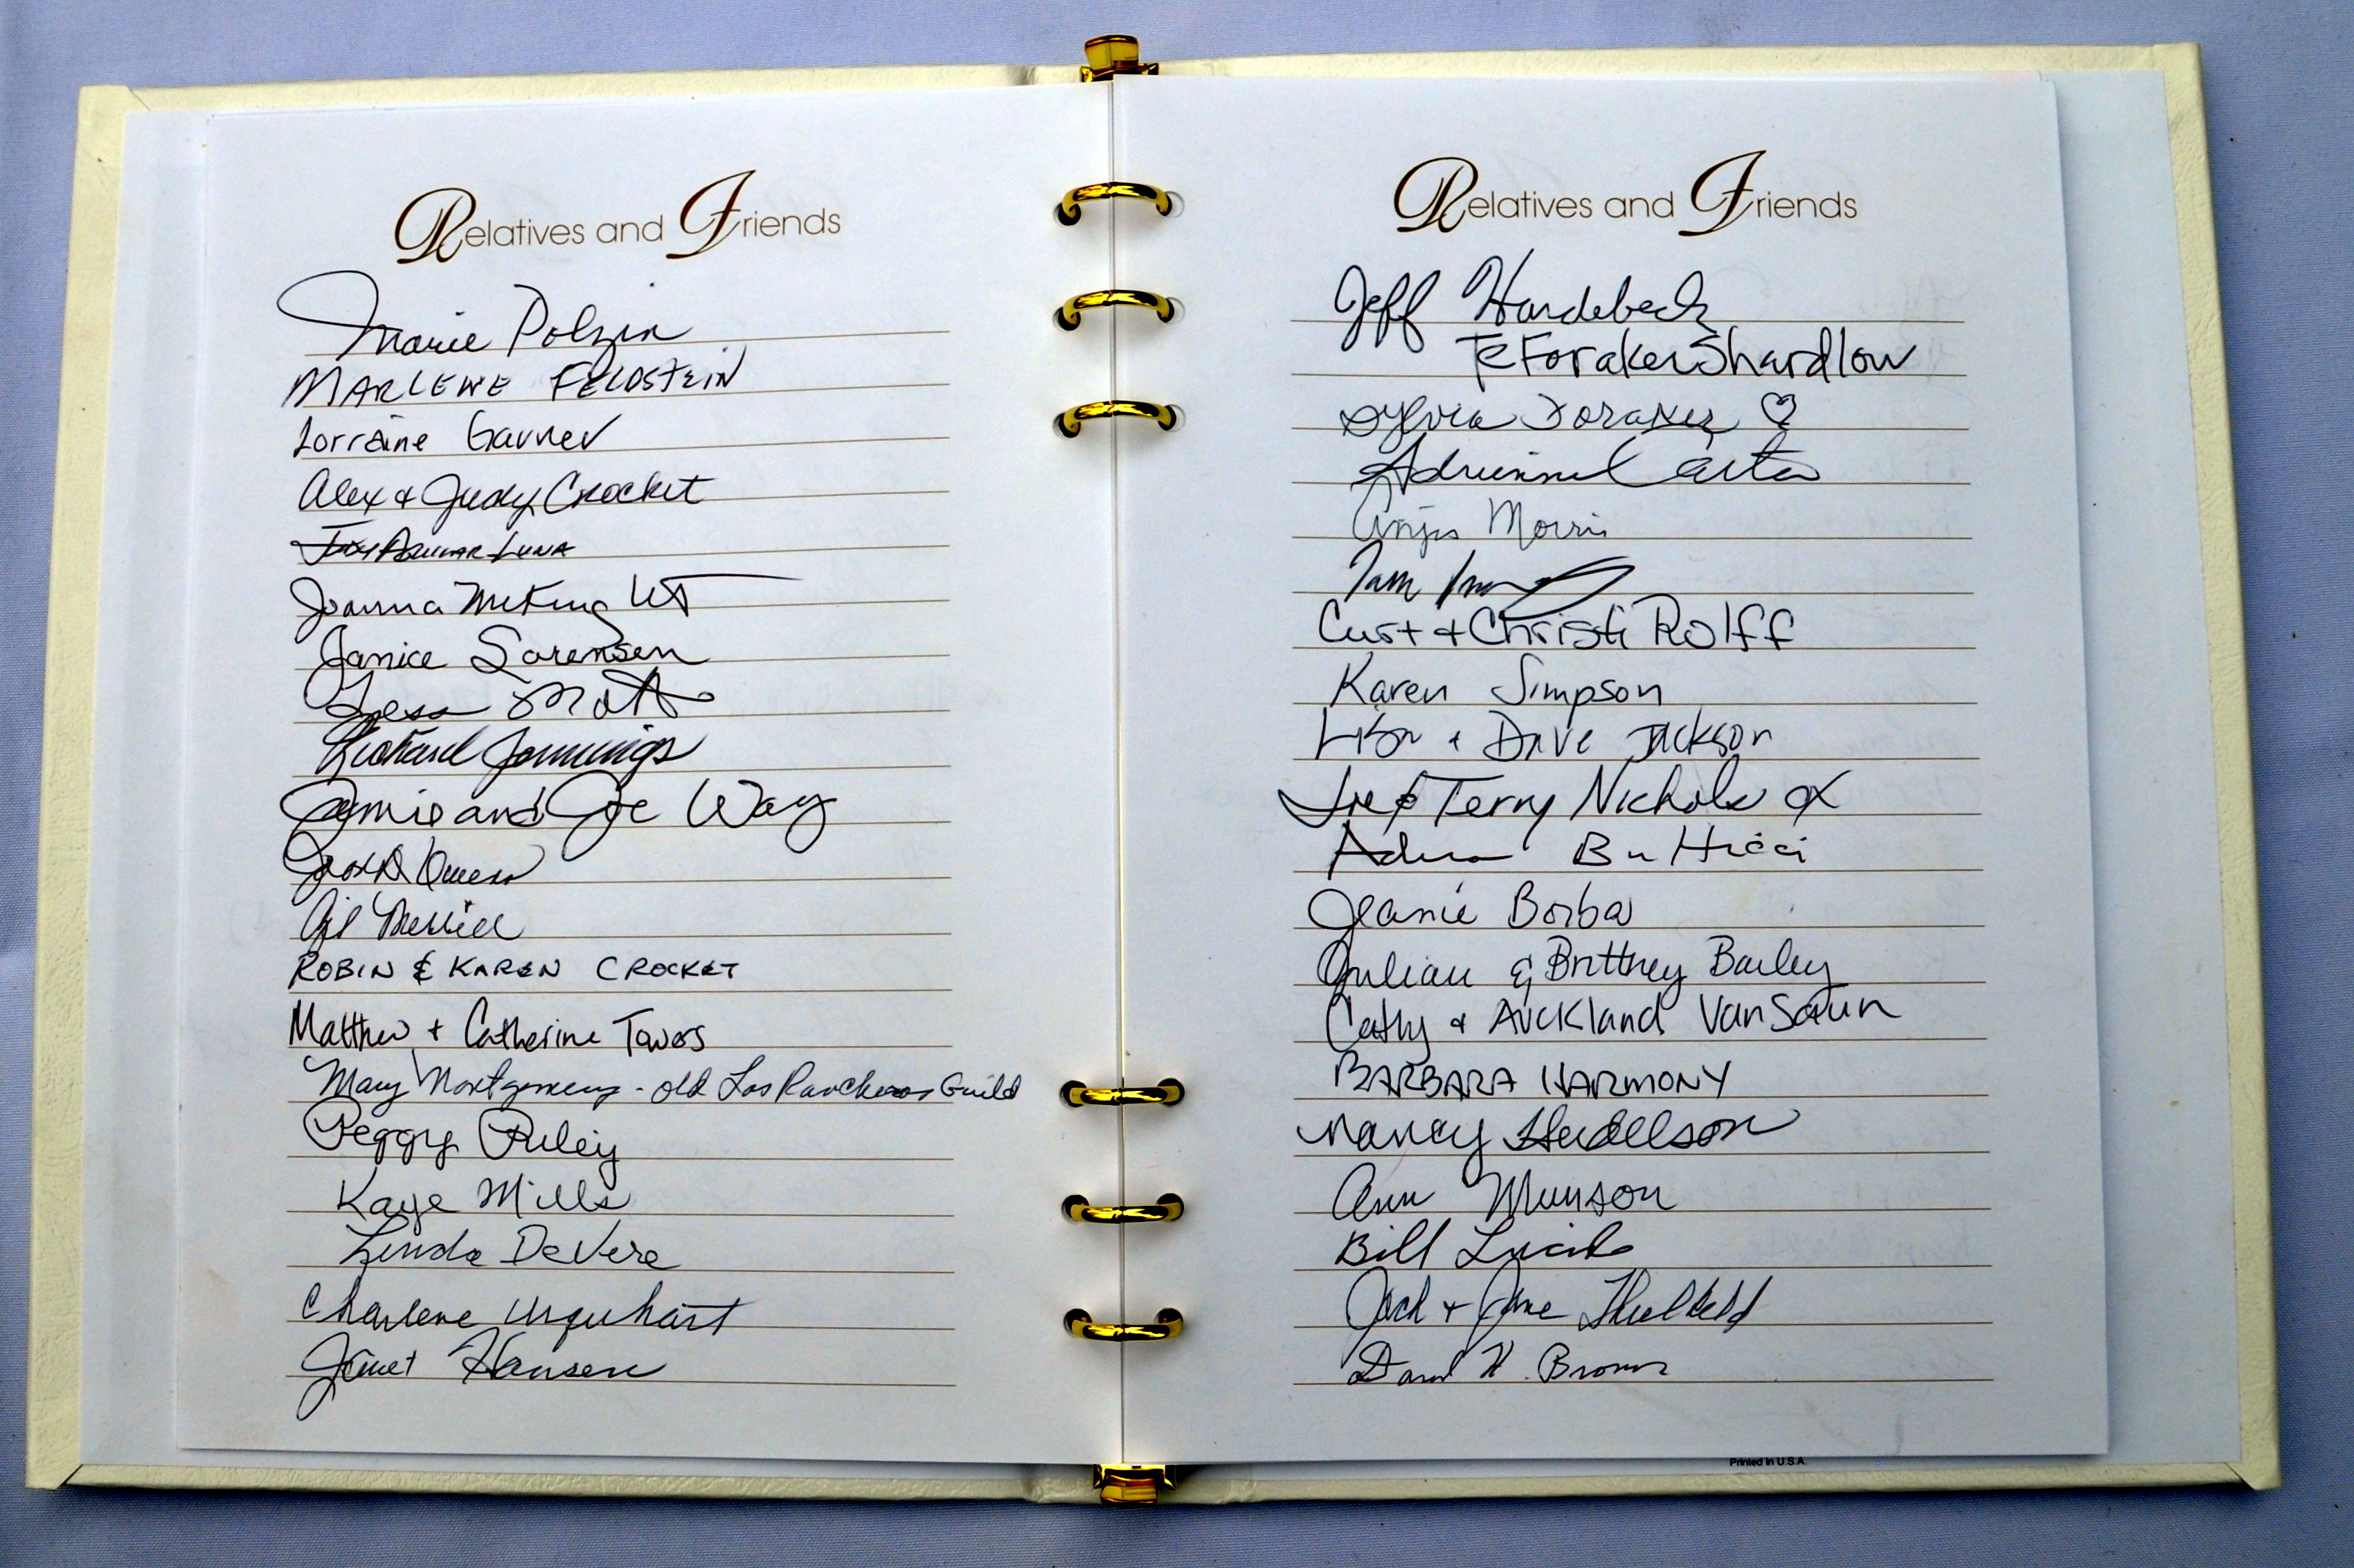 Relatives and Friends
Marie Polzin
MARLENE FELDSTEIN
Lorraine Garner
Alex & Judy Crocket
AGUILAR LUNA
Joanna McKnight
Janice Sorensen
Tess Mott
Richard Jennings
Jamie and Joe Way
Owens
Gil Merrill
ROBIN & KAREN CROCKET
Matthew + Catherine Tavares
Mary Montgomery - old Los Rancheros Guild
Peggy Riley
Kaye Mills
Linda DeVere
Charlene Urquhart
Janet Hansen
Relatives and Friends
Jeff Hardebeck
Foraker Shardlow
Sylvia Foraker ♡
Carter
Morris
Curt + Christi Rolff
Karen Simpson
Lisa + Dave Jackson
Terry Nichols
Butticci
Jeanie Borba
Julian & Brittney Bailey
Cathy & Auckland VanSaun
BARBARA HARMONY
Nancy Hudelson
Ann Munson
Bill
Jack + Jane
H. Brown
Printed in U.S.A.